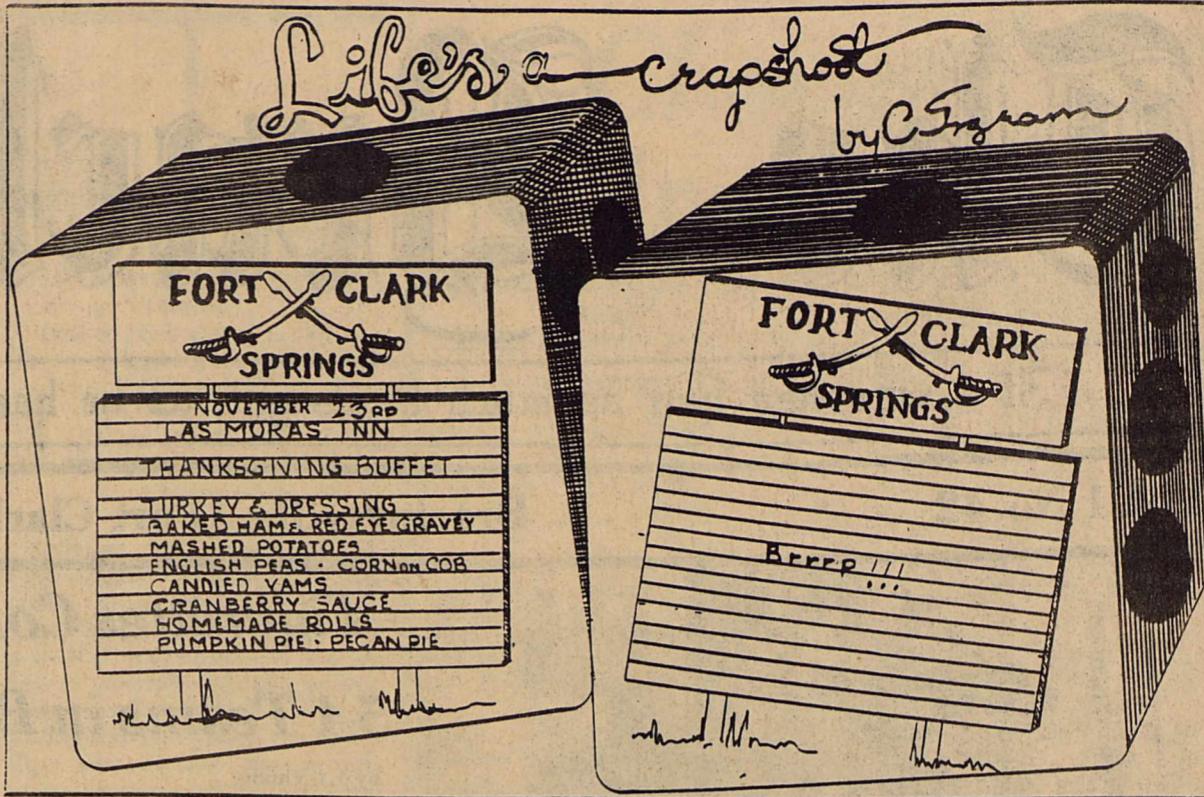 Life's a crapshoot
by C Ingram
FORT CLARK
SPRINGS
NOVEMBER 23RD
LAS MORAS INN
THANKSGIVING BUFFE
TURKEY & DRESSING
BAKED HAM & RED EYE GRAVEY
MASHED POTATOES
ENGLISH PEAS · CORN ON COB
CANDIED YAMS
CRANBERRY SAUCE
HOMEMADE ROLLS
PUMPKIN PIE · PECAN PIE
FORT CLARK
SPRINGS
BrrrP !!!